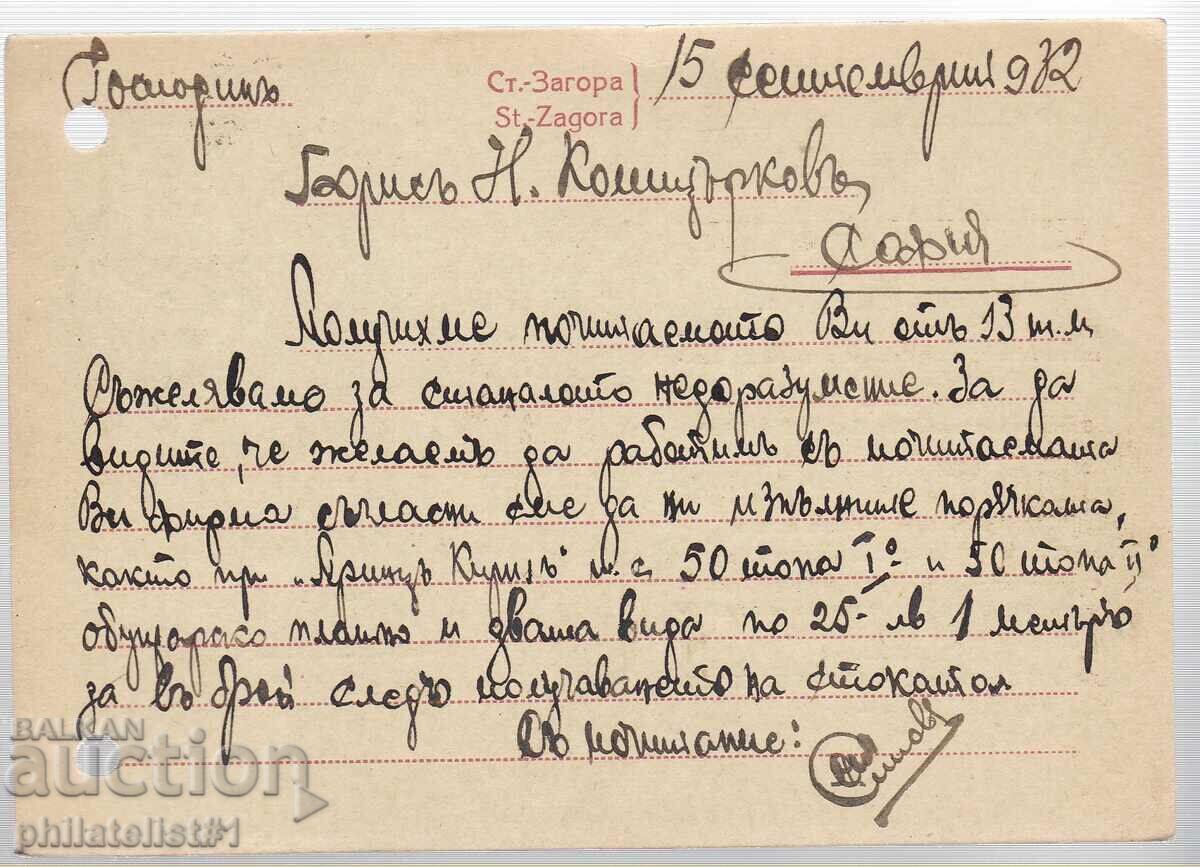 Господинъ
Ст.-Загора
St.-Zagora
15 септемврий 932
Борисъ Н. Кошизърковъ,
София
Получихме почитаемото Ви отъ 13 т.м.
Съжеляваме за станалото недоразумение. За да
видите, че желаемъ да работимъ съ почитаемата
Ви фирма съгласни сме да ни изпълните поръчката,
както при „Принцъ Кирилъ" т.е. 50 топа I° и 50 топа II°
обущарско платно и двата вида по 25- лв 1 метъръ
за въ брой следъ получаването на стоката
Съ почитание:
BALKAN
auction
philatelist#1